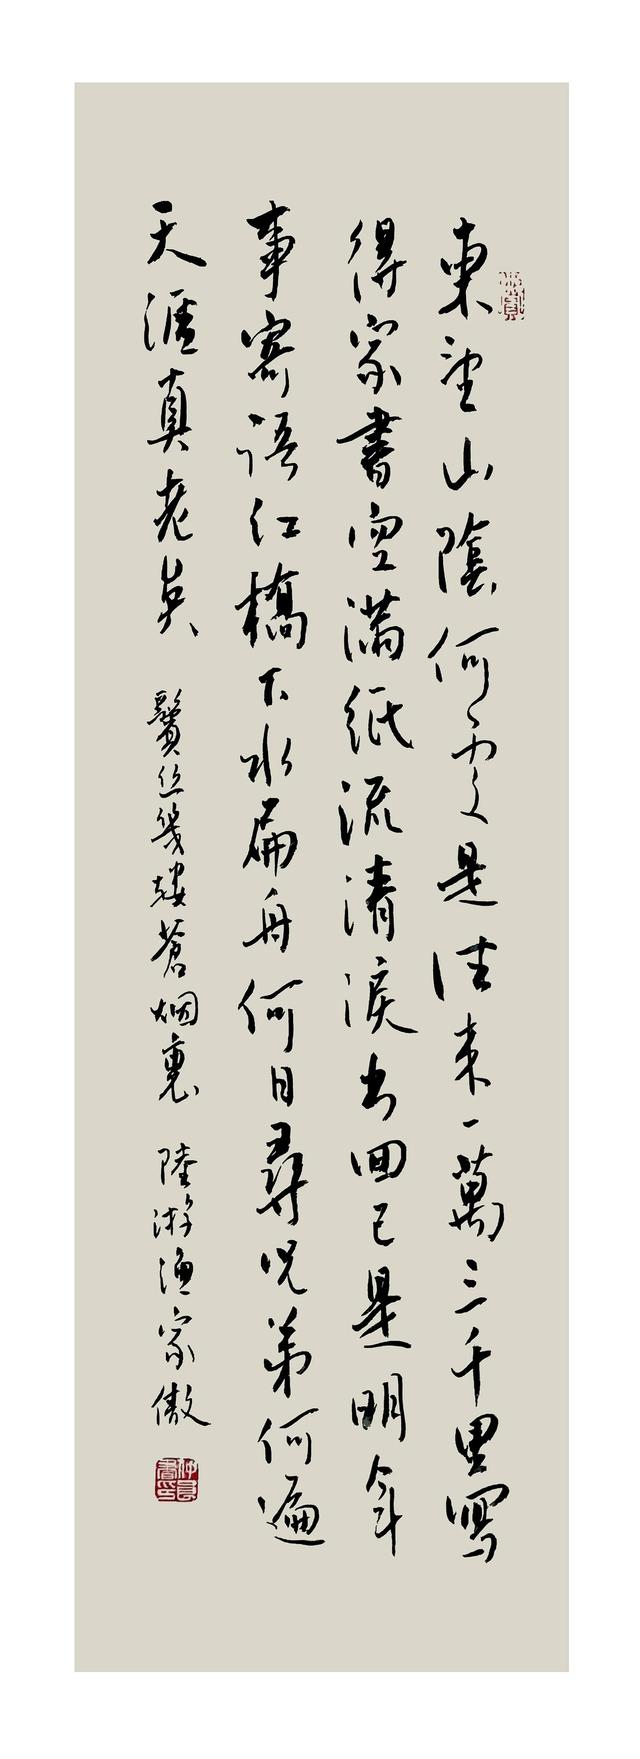 東望山陰何處是往来一萬三千里寫
得家書空滿紙流清淚书回已是明年
事寄語红橋下水扁舟何日尋兄弟何遍
天涯真老矣 鬢丝幾縷蒼烟裏 陸游漁家傲